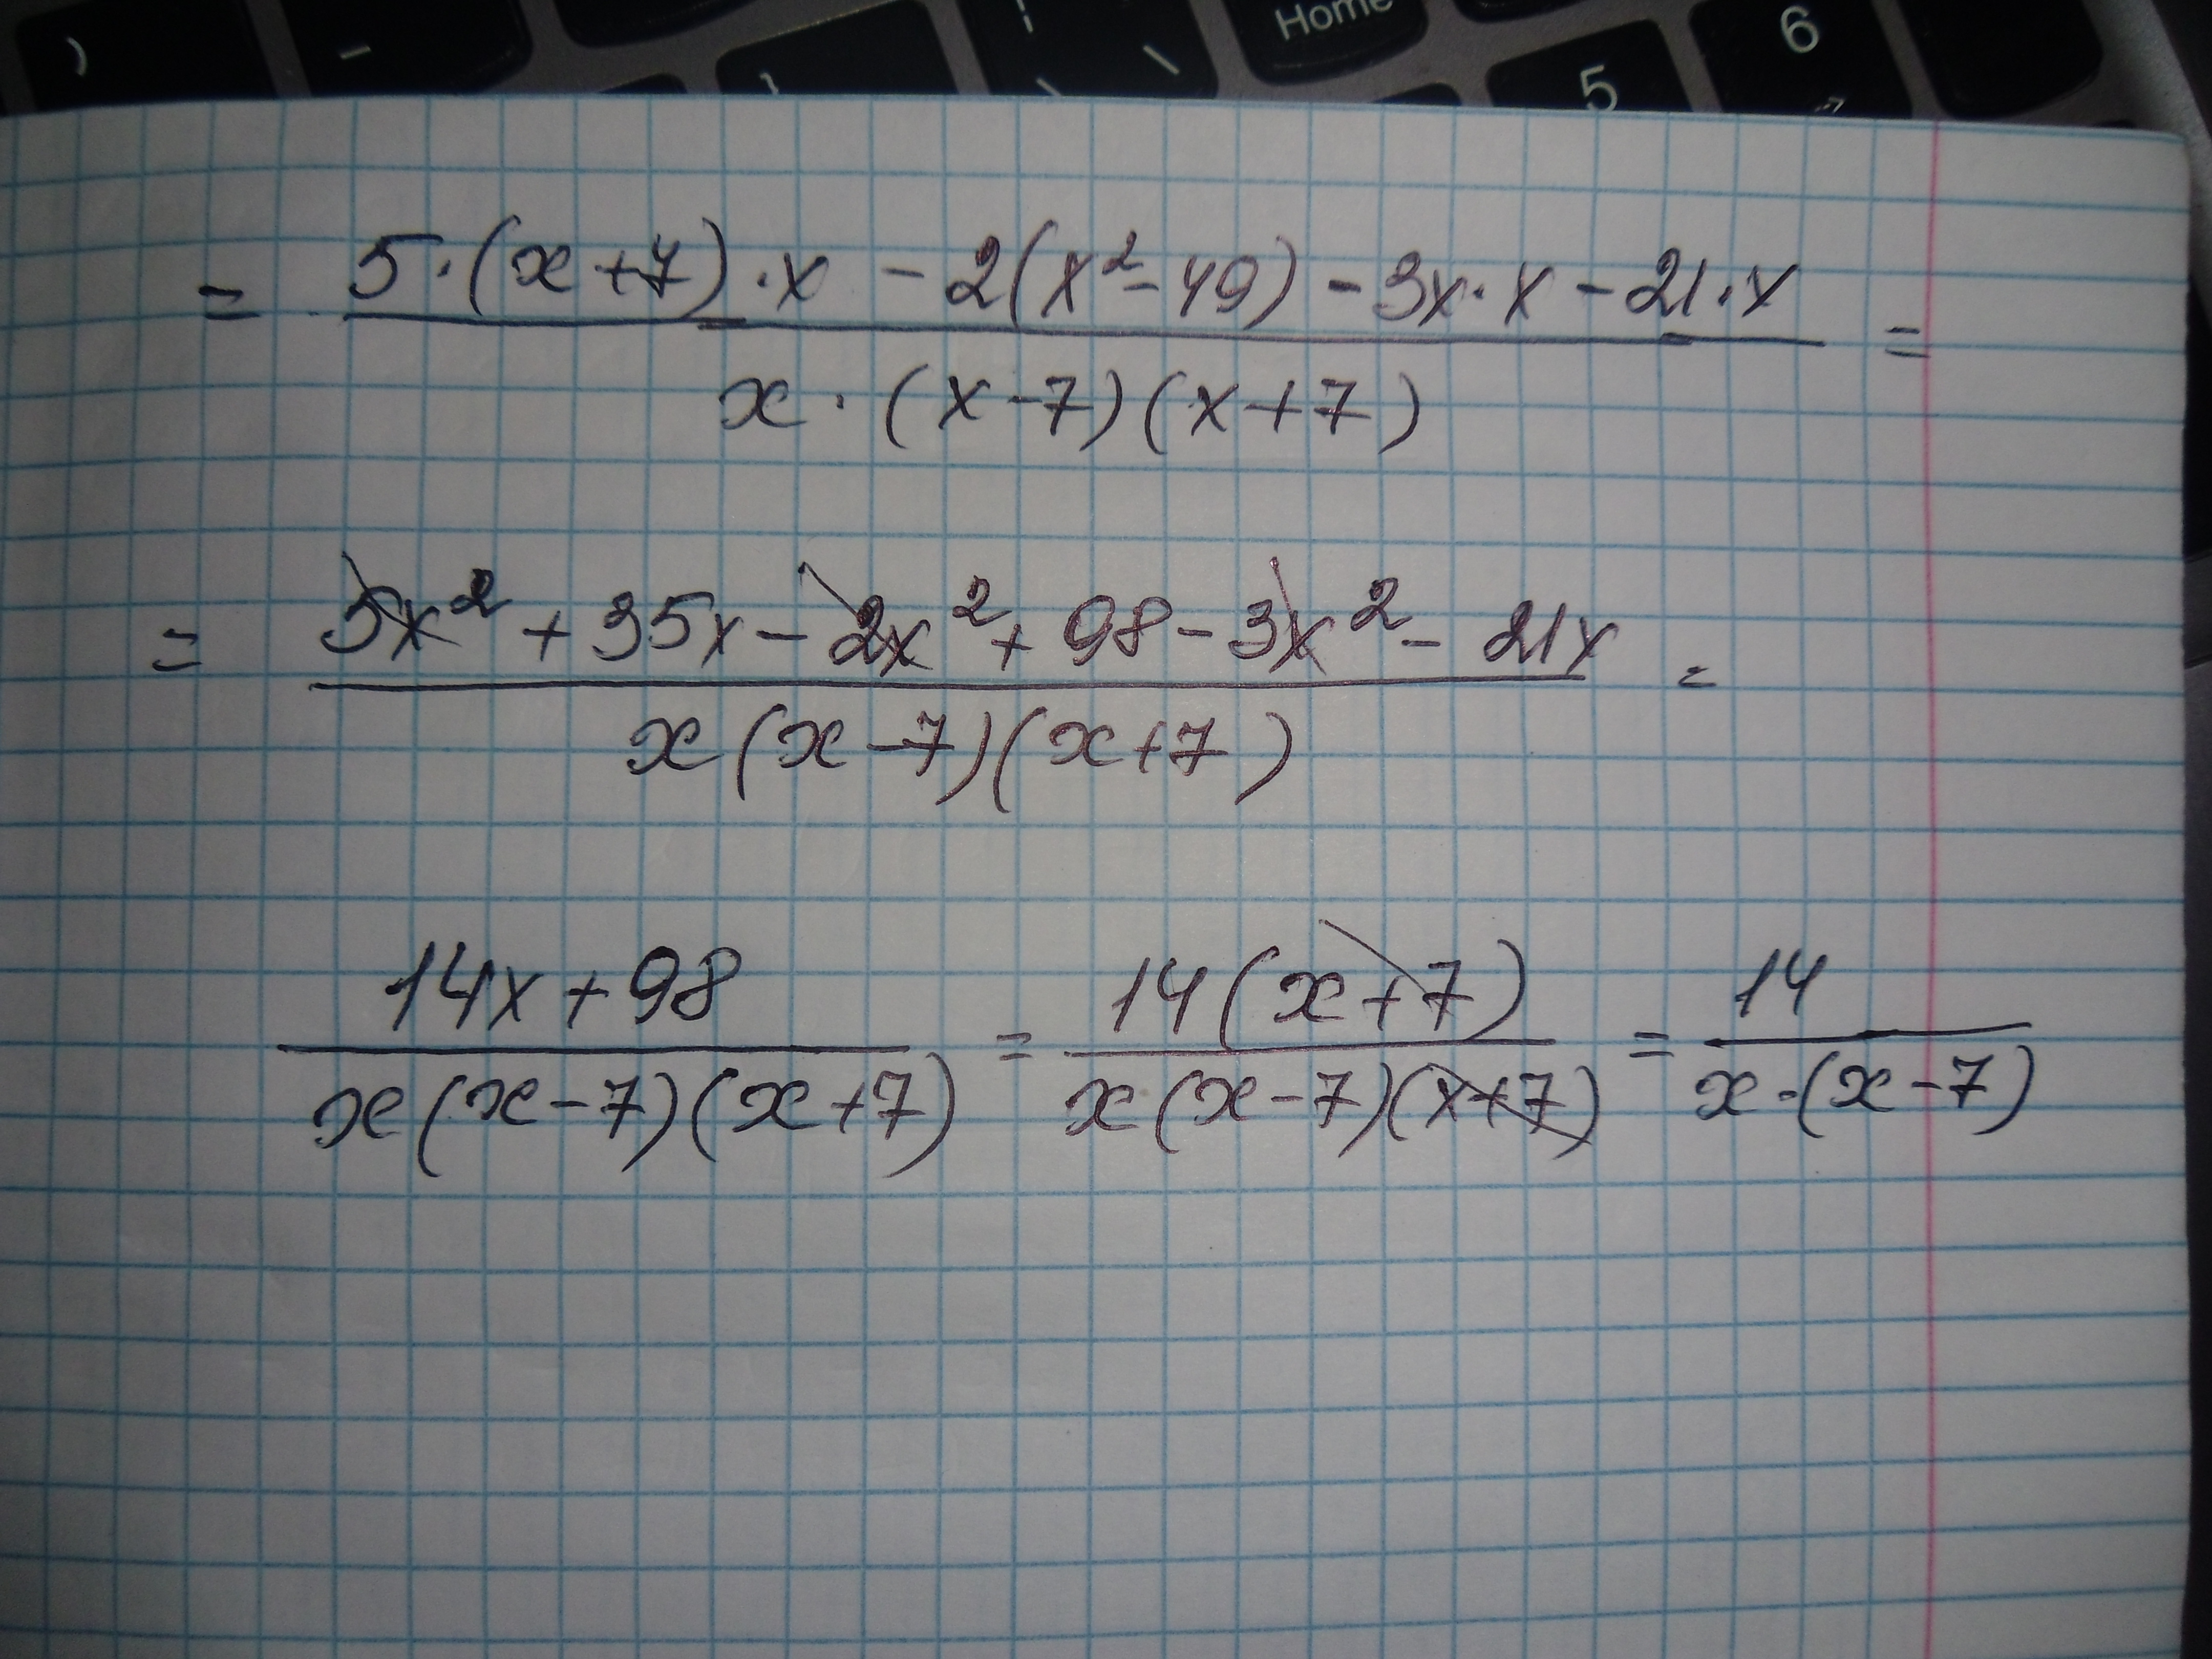 ) - } \ Home 5 6
= 5·(x+7)·x - 2(x²-49) - 3x·x - 21·x =
x·(x-7)(x+7)
= 5x² + 35x - 2x² + 98 - 3x² - 21x =
x(x-7)(x+7)
14x+98 = 14(x+7) = 14
x(x-7)(x+7) x(x-7)(x+7) x·(x-7)